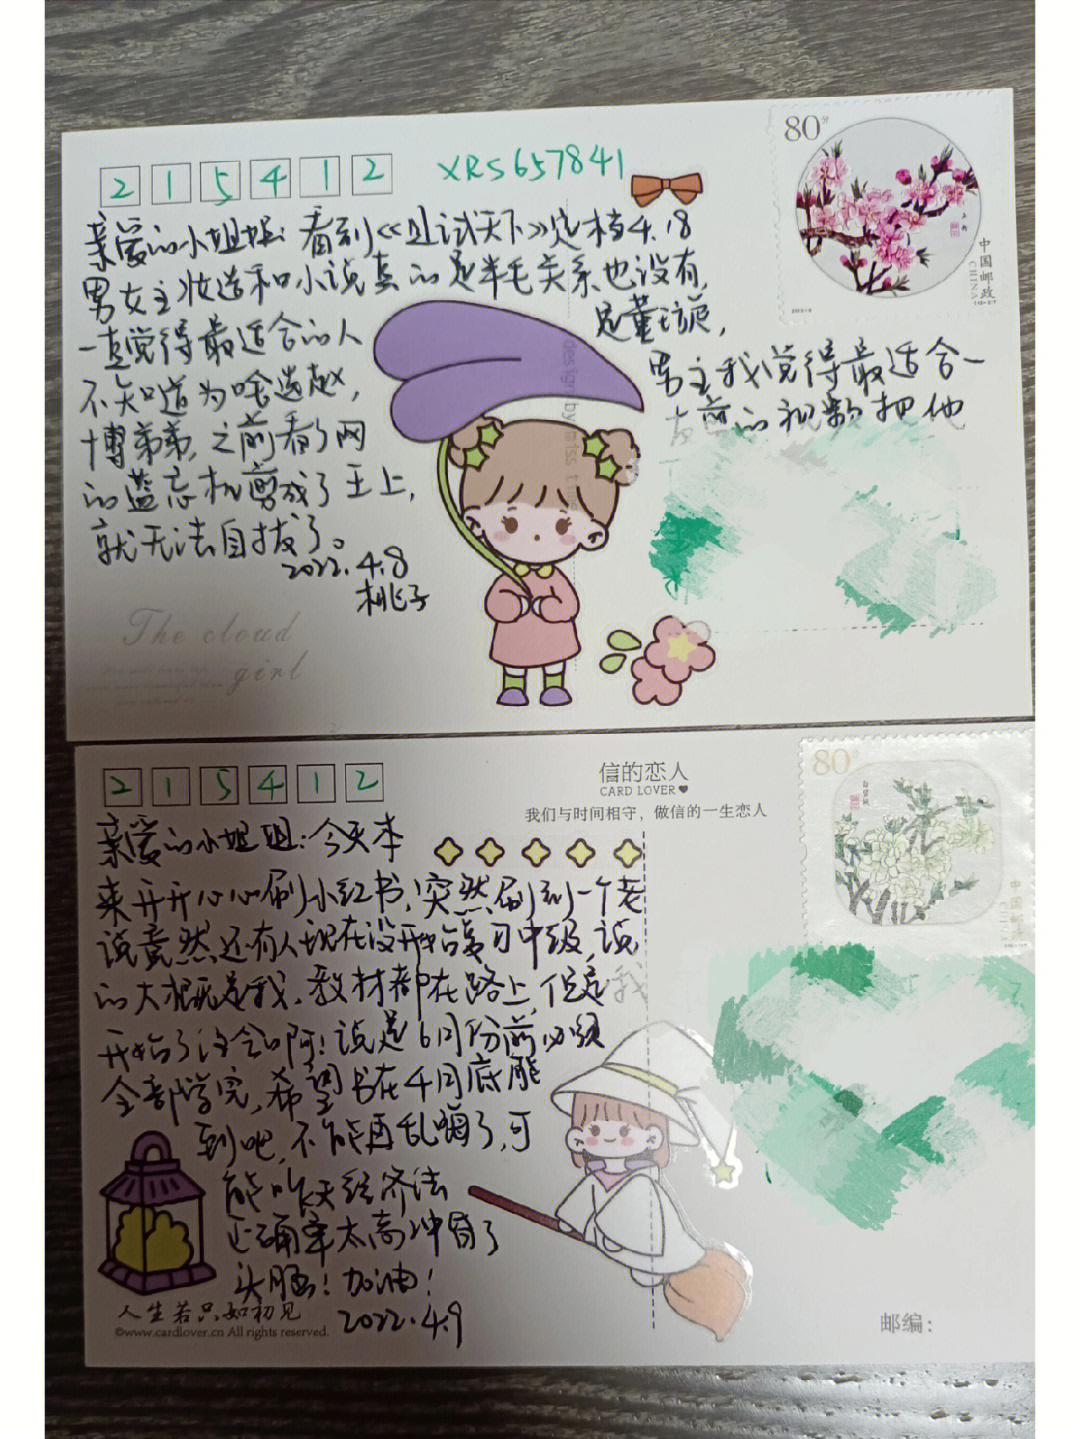 215412 XRS657841
80分
亲爱的小姐姐:看到《且试天下》定档4.18
男女主妆造和小说真的是半毛关系也没有,
一直觉得最适合的人 是董璇,
不知道为啥选赵, 男主我觉得最适合一
博弟弟,之前看了网 友剪的视频把他
的蓝忘机剪成了王上,
就无法自拔了。
2022.4.8
桃子
The cloud
girl
design by miss time
中国邮政
CHINA
215412
信的恋人
CARD LOVER
我们与时间相守,做信的一生恋人
80分
亲爱的小姐姐:今天本
来开开心心刷小红书,突然刷到一个老
说竟然还有人现在没开始复习中级,说
的大概就是我,教材都在路上,但是我
开始了注会啊!说是6月份前必须
全部学完,希望书在4月底能
到吧,不能再乱嗨了,可
能昨天经济法
正确率太高冲昏了
头脑!加油!
2022.4.9
人生若只如初见
©www.cardlover.cn All rights reserved.
邮编: